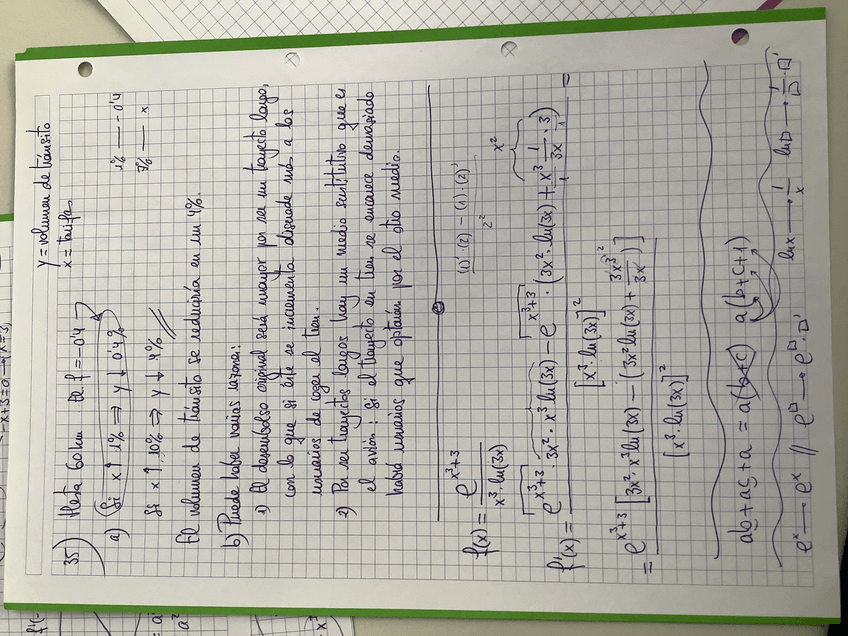 35) Hasta 60 km El.f = -0'4
y = volumen de tránsito
x = tarifas
a) Si x ↑ 1% ⇒ y ↓ 0'4%
1% — -0'4
Si x ↑ 10% ⇒ y ↓ 4%
% — x
El volumen de tránsito se reduciría en un 4%.
b) Puede haber varias razones:
1) El desembolso original será mayor por ser un trayecto largo,
con lo que si éste se incrementa disuade más a los
usuarios de coger el tren.
2) Por ser trayectos largos hay un medio sustitutivo que es
el avión: si el trayecto en tren se encarece demasiado
habrá usuarios que optarán por el otro medio.
f(x) = e^(x³+3) / (x³·ln(3x))
((1)'·(2) - (1)·(2)') / 2²
x²
f'(x) = (e^(x³+3)·3x²·x³ ln(3x) - e^(x³+3)·(3x²·ln(3x) + x³ 1/3x · 3)) / [x³·ln(3x)]² =
= e^(x³+3) [3x²·x³ ln(3x) - (3x² ln(3x) + 3x³/3x)] / [x³·ln(3x)]²
ab + ac + a = a(b+c) a(b+c+1)
e^x → e^x // e^□ → e^□·□' ln x → 1/x ln □ → 1/□·□'
-x+3=0 → x=3,